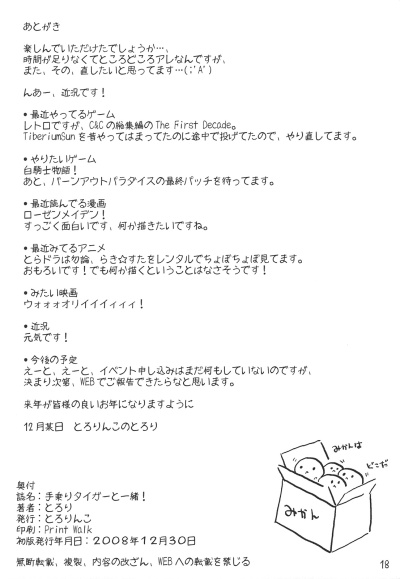 あとがき
楽しんでいただけたでしょうか…、
時間が足りなくてところどころアレなんですが、
また、その、直したいと思ってます…(;'A`)
んあー、近況です！
•最近やってるゲーム
レトロですが、C&Cの総集編のThe First Decade。
TiberiumSunを昔やってはまってたのに途中で投げてたので、やり直してます。
•やりたいゲーム
白騎士物語！
あと、バーンアウトパラダイスの最終パッチを待ってます。
•最近読んでる漫画
ローゼンメイデン！
すっごく面白いです、何か描きたいですね。
•最近みてるアニメ
とらドラは勿論、らき☆すたをレンタルでちょぼちょぼ見てます。
おもろいです！でも何か描くということはなさそうです！
•みたい映画
ウォォォオリイイイィィィ！
•近況
元気です！
•今後の予定
えーと、えーと、イベント申し込みはまだ何もしていないのですが、
決まり次第、WEBでご報告できたらなと思います。
来年が皆様の良いお年になりますように
12月某日　とろりんこのとろり
みかんは
どこだ
みかん
奥付
話名：手乗りタイガーと一緒！
著者：とろり
発行：とろりんこ
印刷：Print Walk
初版発行年月日：2008年12月30日
無断転載、複製、内容の改ざん、WEBへの転載を禁じる
18